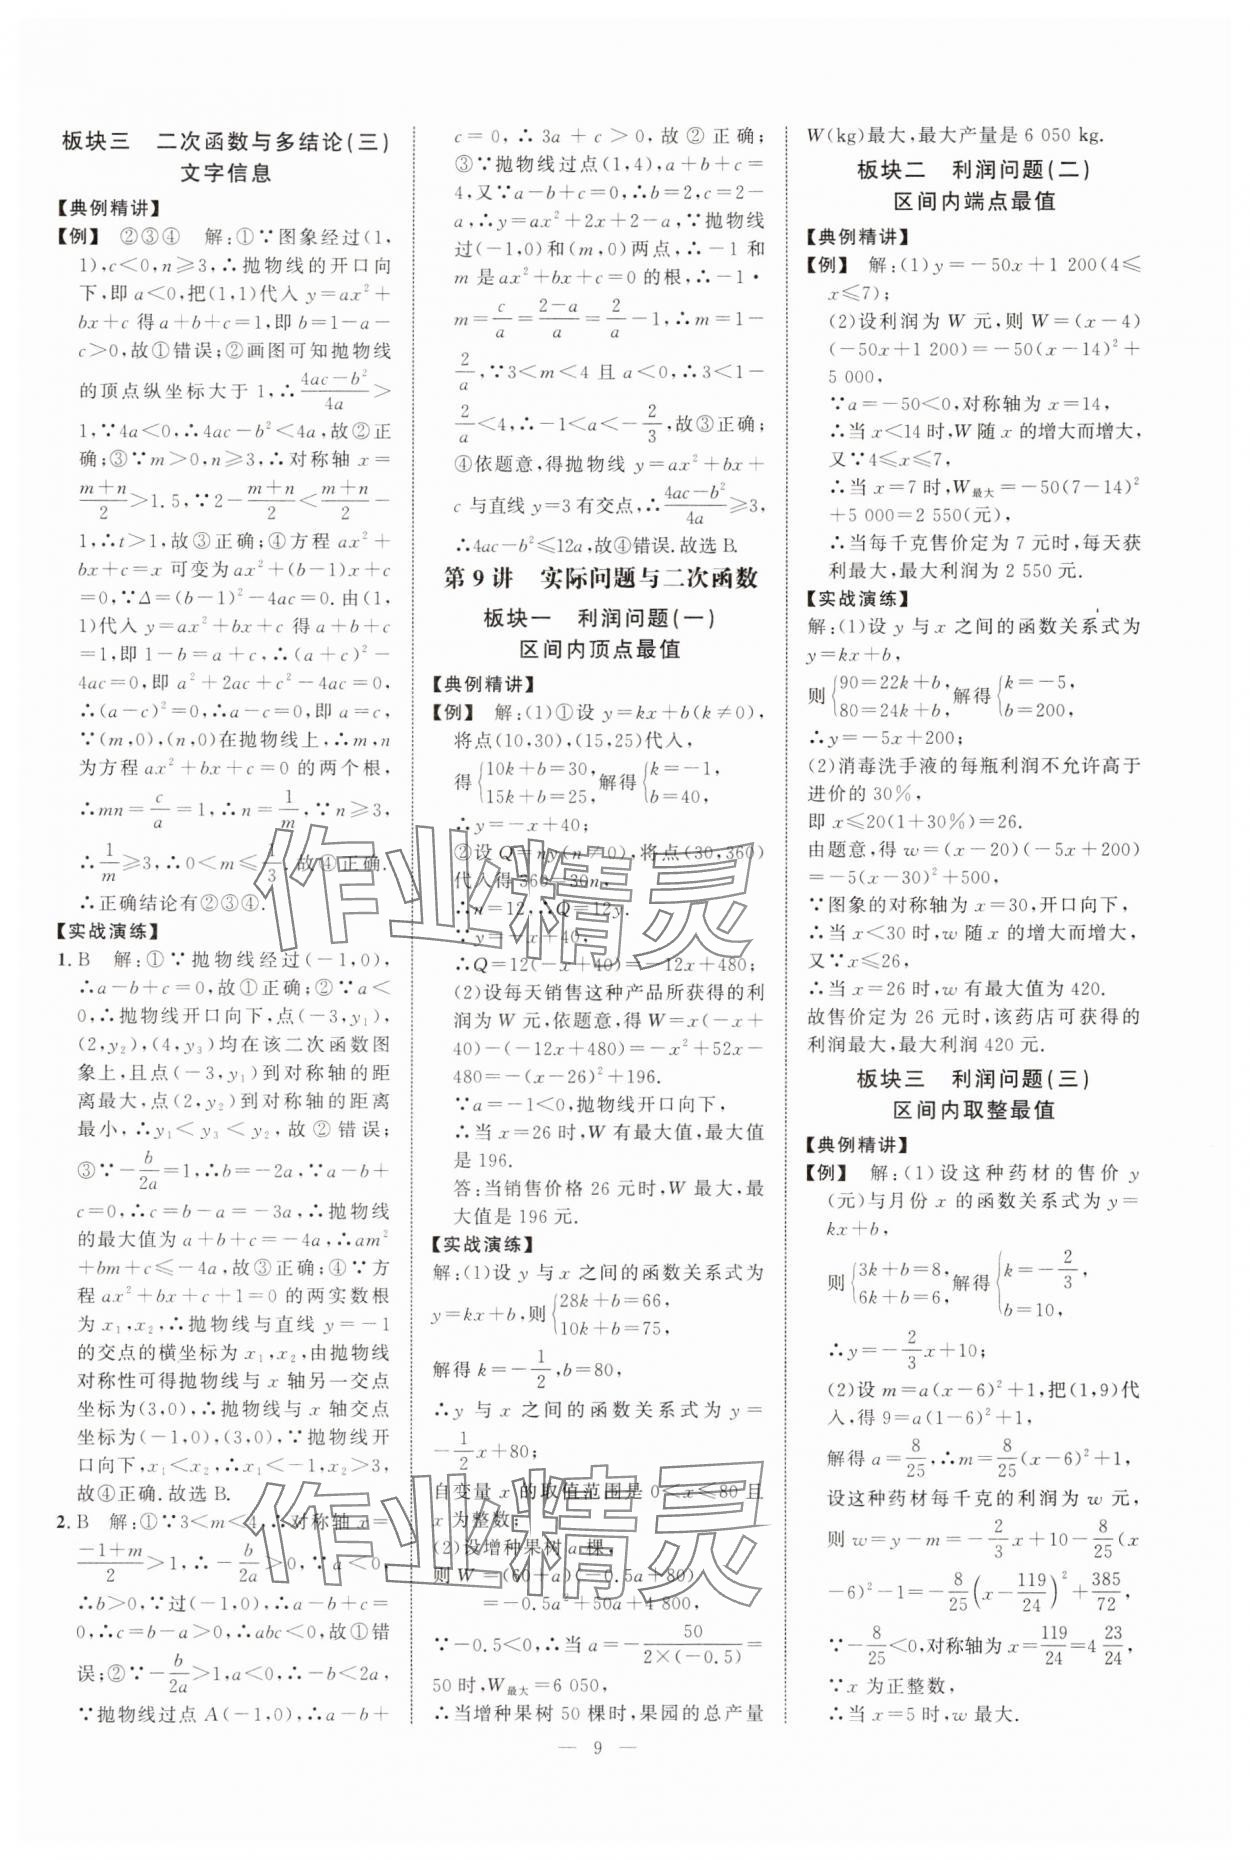 板块三　二次函数与多结论(三)
文字信息
【典例精讲】
【例】　②③④　解:①∵图象经过(1,
1),c<0,n≥3,∴抛物线的开口向
下,即a<0,把(1,1)代入 y=ax²+
bx+c 得a+b+c=1,即b=1-a-
c>0,故①错误;②画图可知抛物线
的顶点纵坐标大于1,∴(4ac-b²)/(4a)>
1,∵4a<0,∴4ac-b²<4a,故②正
确;③∵m>0,n≥3,∴对称轴 x=
(m+n)/2>1.5,∵2-(m+n)/2<(m+n)/2-
1,∴t>1,故③正确;④方程 ax²+
bx+c=x 可变为ax²+(b-1)x+c
=0,∵Δ=(b-1)²-4ac=0.由(1,
1)代入 y=ax²+bx+c 得 a+b+c
=1,即1-b=a+c,∴(a+c)²-
4ac=0,即 a²+2ac+c²-4ac=0,
∴(a-c)²=0,∴a-c=0,即a=c,
∵(m,0),(n,0)在抛物线上,∴m,n
为方程 ax²+bx+c=0 的两个根,
∴mn=c/a=1,∴n=1/m,∵n≥3,
∴1/m≥3,∴0<m≤1/3,故④正确.
∴正确结论有②③④.
【实战演练】
1. B　解:①∵抛物线经过(-1,0),
∴a-b+c=0,故①正确;②∵a<
0,∴抛物线开口向下,点(-3,y₁),
(2,y₂),(4,y₃)均在该二次函数图
象上,且点(-3,y₁)到对称轴的距
离最大,点(2,y₂)到对称轴的距离
最小,∴y₁<y₃<y₂,故②错误;
③∵-b/(2a)=1,∴b=-2a,∵a-b+
c=0,∴c=b-a=-3a,∴抛物线
的最大值为 a+b+c=-4a,∴am²
+bm+c≤-4a,故③正确;④∵方
程 ax²+bx+c+1=0 的两实数根
为 x₁,x₂,∴抛物线与直线 y=-1
的交点的横坐标为 x₁,x₂,由抛物线
对称性可得抛物线与 x 轴另一交点
坐标为(3,0),∴抛物线与 x 轴交点
坐标为(-1,0),(3,0),∵抛物线开
口向下,x₁<x₂,∴x₁<-1,x₂>3,
故④正确.故选B.
2. B　解:①∵3<m<4,∴对称轴 x=
(-1+m)/2>1,∴-b/(2a)>0,∵a<0,
∴b>0,∵过(-1,0),∴a-b+c=
0,∴c=b-a>0,∴abc<0,故①错
误;②∵-b/(2a)>1,a<0,∴-b<2a,
∵抛物线过点 A(-1,0),∴a-b+
c=0,∴3a+c>0,故②正确;
③∵抛物线过点(1,4),a+b+c=
4,又∵a-b+c=0,∴b=2,c=2-
a,∴y=ax²+2x+2-a,∵抛物线
过(-1,0)和(m,0)两点,∴-1 和
m 是 ax²+bx+c=0 的根,∴-1·
m=c/a=(2-a)/a=2/a-1,∴m=1-
2/a,∵3<m<4 且 a<0,∴3<1-
2/a<4,∴-1<a<-2/3,故③正确;
④依题意,得抛物线 y=ax²+bx+
c 与直线 y=3 有交点,∴(4ac-b²)/(4a)≥3,
∴4ac-b²≤12a,故④错误.故选B.
第9讲　实际问题与二次函数
板块一　利润问题(一)
区间内顶点最值
【典例精讲】
【例】　解:(1)①设 y=kx+b(k≠0),
将点(10,30),(15,25)代入,
得{10k+b=30, 15k+b=25,解得{k=-1, b=40,
∴y=-x+40;
②设 Q=ny(n≠0),将点(30,360)
代入得 360=30n,
∴n=12,∴Q=12y.
∵y=-x+40,
∴Q=12(-x+40)=-12x+480;
(2)设每天销售这种产品所获得的利
润为 W 元,依题意,得 W=x(-x+
40)-(-12x+480)=-x²+52x-
480=-(x-26)²+196.
∵a=-1<0,抛物线开口向下,
∴当 x=26 时,W 有最大值,最大值
是 196.
答:当销售价格 26 元时,W 最大,最
大值是 196 元.
【实战演练】
解:(1)设 y 与 x 之间的函数关系式为
y=kx+b,则{28k+b=66, 10k+b=75,
解得 k=-1/2,b=80,
∴y 与 x 之间的函数关系式为 y=
-1/2x+80;
自变量 x 的取值范围是 0<x≤80 且
x 为整数;
(2)设增种果树 a 棵,
则 W=(60+a)(-0.5a+80)
=-0.5a²+50a+4 800,
∵-0.5<0,∴当 a=-50/(2×(-0.5))=
50 时,W最大=6 050,
∴当增种果树 50 棵时,果园的总产量
W(kg)最大,最大产量是 6 050 kg.
板块二　利润问题(二)
区间内端点最值
【典例精讲】
【例】　解:(1)y=-50x+1 200(4≤
x≤7);
(2)设利润为 W 元,则 W=(x-4)
(-50x+1 200)=-50(x-14)²+
5 000,
∵a=-50<0,对称轴为 x=14,
∴当 x<14 时,W 随 x 的增大而增大,
又∵4≤x≤7,
∴当 x=7 时,W最大=-50(7-14)²
+5 000=2 550(元),
∴当每千克售价定为 7 元时,每天获
利最大,最大利润为 2 550 元.
【实战演练】
解:(1)设 y 与 x 之间的函数关系式为
y=kx+b,
则{90=22k+b, 80=24k+b,解得{k=-5, b=200,
∴y=-5x+200;
(2)消毒洗手液的每瓶利润不允许高于
进价的 30%,
即 x≤20(1+30%)=26.
由题意,得 w=(x-20)(-5x+200)
=-5(x-30)²+500,
∵图象的对称轴为 x=30,开口向下,
∴当 x<30 时,w 随 x 的增大而增大,
又∵x≤26,
∴当 x=26 时,w 有最大值为 420.
故售价定为 26 元时,该药店可获得的
利润最大,最大利润 420 元.
板块三　利润问题(三)
区间内取整最值
【典例精讲】
【例】　解:(1)设这种药材的售价 y
(元)与月份 x 的函数关系式为 y=
kx+b,
则{3k+b=8, 6k+b=6,解得{k=-2/3, b=10,
∴y=-2/3x+10;
(2)设 m=a(x-6)²+1,把(1,9)代
入,得 9=a(1-6)²+1,
解得 a=8/25,∴m=8/25(x-6)²+1,
设这种药材每千克的利润为 w 元,
则 w=y-m=-2/3x+10-8/25(x
-6)²-1=-8/25(x-119/24)²+385/72,
∵-8/25<0,对称轴为 x=119/24=4 23/24,
∵x 为正整数,
∴当 x=5 时,w 最大.
— 9 —
作业精灵
作业精灵